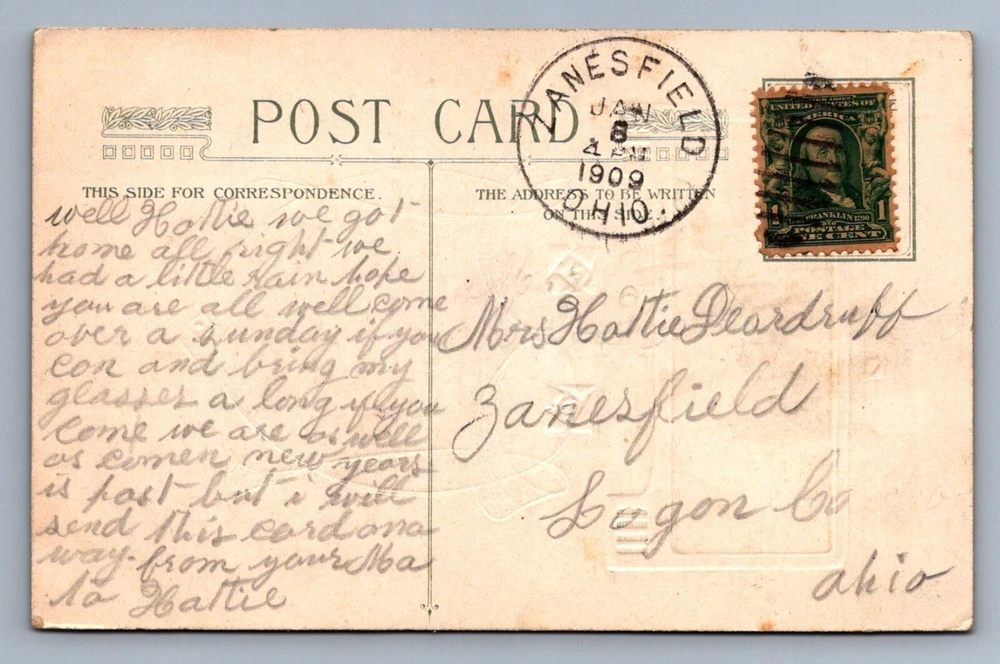 POST CARD
ZANESFIELD
JAN
8
4 PM
1909
OHIO.
UNITED STATES OF
AMERICA
FRANKLIN 1790
1 1
POSTAGE
ONE CENT
THIS SIDE FOR CORRESPONDENCE.
THE ADDRESS TO BE WRITTEN
ON THIS SIDE.
well Hattie we got
home all right we
had a little rain hope
you are all well come
over a sunday if you
con and being my
glasses a long if you
come we are as well
as comen new years
is past but i will
send this card ana
way from your Ma
to Hattie
Mrs Hattie Deardruff
Zanesfield
Logon Co
ohio